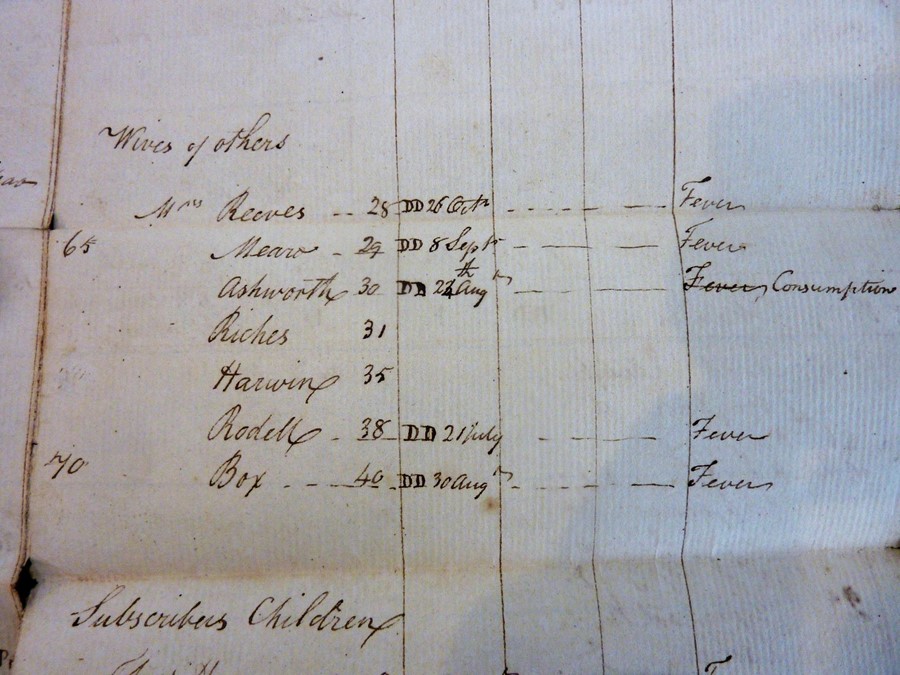 Wives of others
Mrs Reeves - - 28 DD 26 Octr - - - - - Fever
65 Mearo - 29 DD 8 Septr - - - - Fever
Ashworth 30 DD Augt - - - Fever, Consumption
Riches 31
Harwin 35
Rodell - 38 DD 21 July - - - Fever
70 Box - - - 40 DD 30 Augt - - - - Fever
Subscribers Children